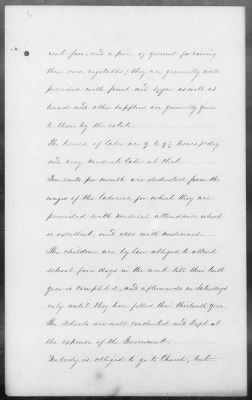 6
rent free, and a piece of ground for raising
their own vegetables; they are generally well
provided with fruit and sugar as well as
bread and other supplies are generally given
to them by the estate.
The hours of labor are 9 to 9½ hours pr day
and very moderate labor at that.
Ten cents per month are deducted from the
wages of the laborers, for which they are
provided with medical attendance which
is excellent, and also with midwives.
The children are by law obliged to attend
school four days in the week till their tenth
year is completed, and afterwards on Saturdays
only until they have filled their thirteenth year.
The schools are well conducted and kept at
the expense of the Government.
Nobody is obliged to go to Church, but